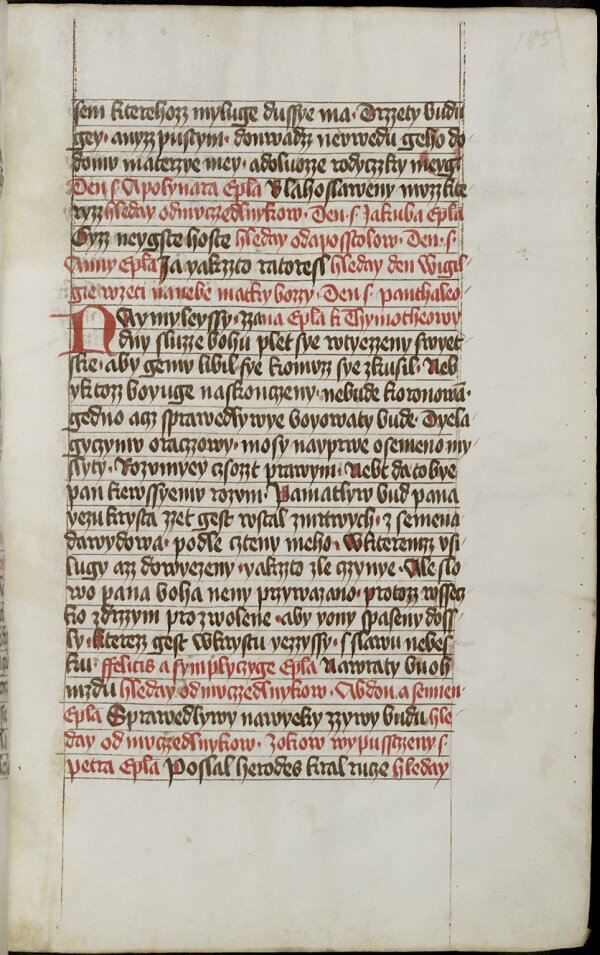 185
sem kterehozz myluge dussye ma · Drzzety budu
gey · anyzz pustym · donwadzz nevwedu geho do
domu materzye mey · adoluozze rodyczky meyg
Den s. Apolynara Epla Blahoslaweny muzz kte
ryzz hleday odmuczedlnykow · Den · s · Jakuba Epla
Gyzz neygste hoste hleday odaposstolow · Den · s ·
Anny Epla Ja yakzzto ratoresl hleday den wigil
gie wzeti nanebe matky bozzy · Den s · panthaleo
Nay myleyssy · zzana Epla k Thymotheowy
dny sluzze bohu plet sye wtyezzeny swyet
ske · aby gemv libil sye komuzz sye zkusil · Neb
yktozz boyuge naskonczeny · nebude koronowa ·
gedno acz sprawedlywye boyowaty bude · Dyela
gyczymv oraczowy · mosy nayprwe osemeno my
slyty · Rozvmyey czsozzt prawym · Nebt da tobye
pan kewssyemv rozvm · Pamatlyw bud pana
yezukrysta zzet gest wstal zmrtwych · z semena
dawydowa · podle czteny meho · Wkteremzz vsi
lugy azz dowyezeny · yakzzto zle czynye · Ale slo
wo pana boha neny przywazano · protozz wssec
ko zdrzzym pro zwolene · aby yony spaseny doss
ly · kterezz gest wkrystu yezzyssy · s slawu nebes
ku · ffelicis a symplyczyge Epla Nawraty buoh
mzdu hleday od muczedlnykow · Abdon a semen
Epla Sprawedlywy nawyeky zzywy budu hle
day od muczedlnykow · Zokow wypussczeny s
petra Epla Poslal herodes kral rucze hleday